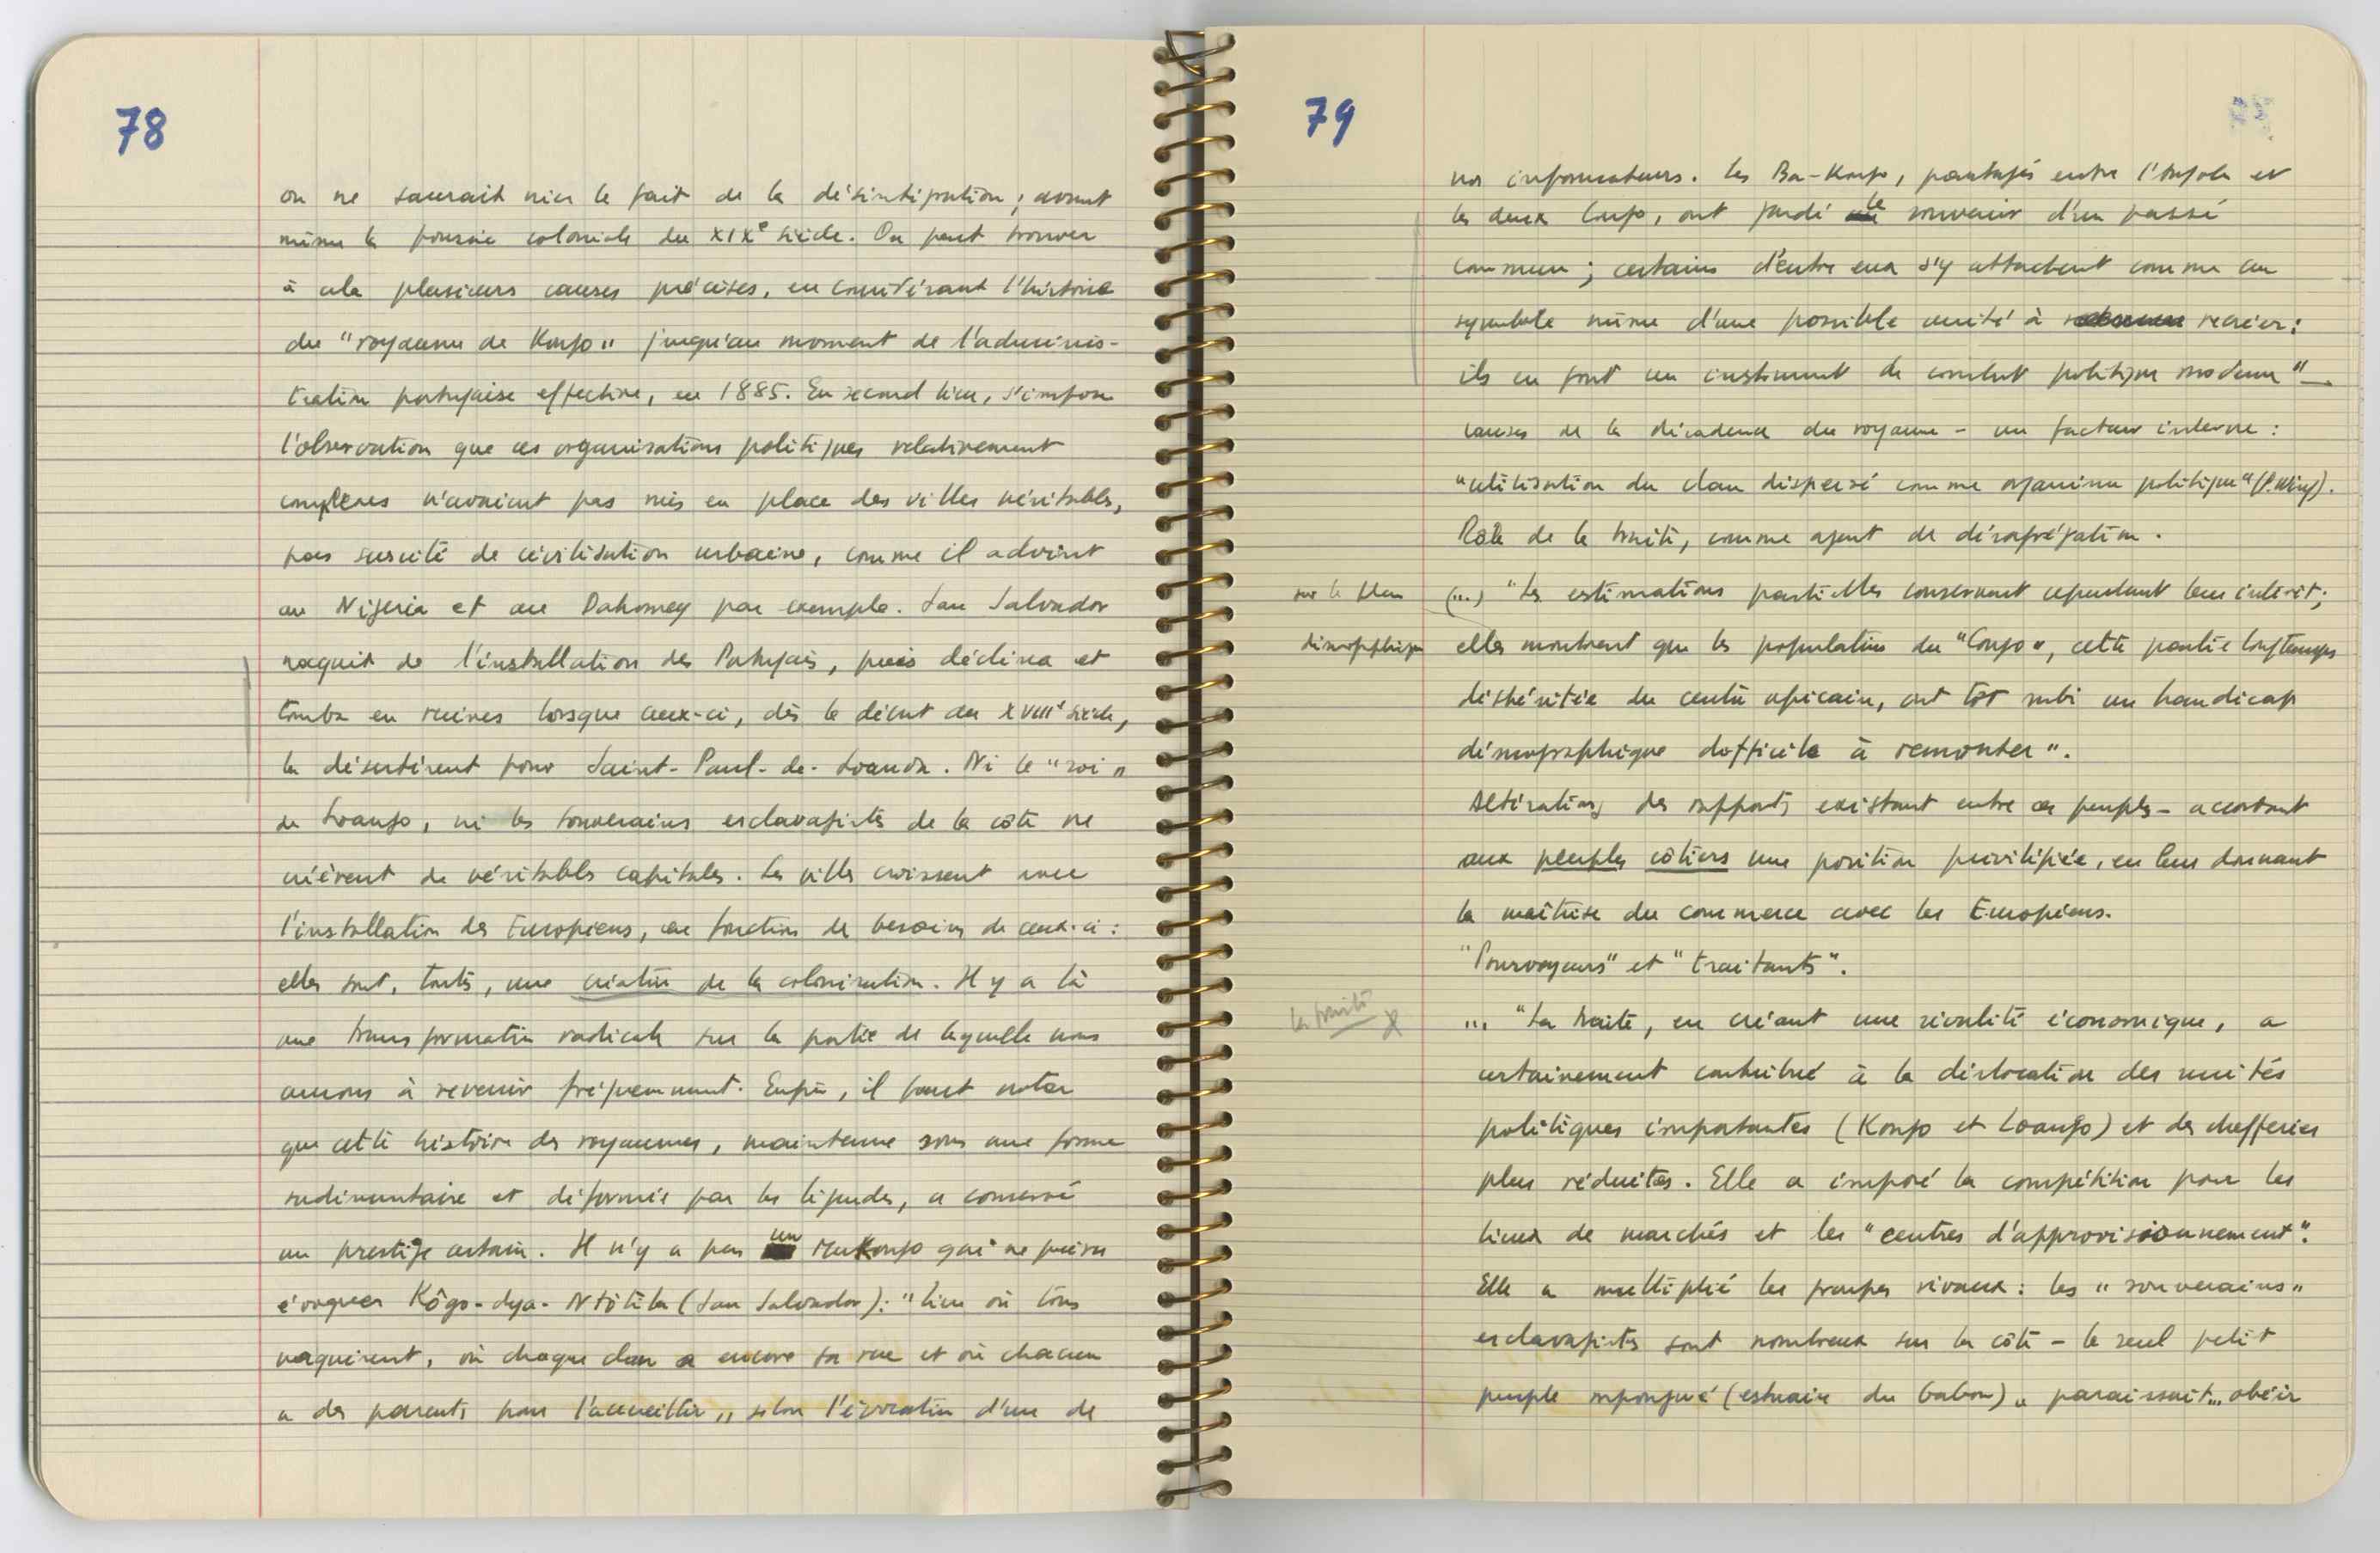 78
on ne saurait nier le fait de la désintégration ; avant
même la poussée coloniale du XIXe siècle. On peut trouver
à cela plusieurs causes précises, en considérant l'histoire
du "royaume de Kongo" jusqu'au moment de l'adminis-
tration portugaise effective, en 1885. En second lieu, s'impose
l'observation que ces organisations politiques relativement
complexes n'avaient pas mis en place des villes véritables,
pas suscité de civilisation urbaine, comme il advint
au Nigeria et au Dahomey par exemple. San Salvador
naquit de l'installation des Portugais, puis déclina et
tomba en ruines lorsque ceux-ci, dès le début du XVIIIe siècle,
la désertèrent pour Saint-Paul-de-Loanda. Ni le "roi"
de Loango, ni les souverains esclavagistes de la côte ne
créèrent de véritables capitales. Les villes croissent avec
l'installation des Européens, en fonction de besoins de ceux-ci :
elles sont, toutes, une création de la colonisation. Il y a là
une transformation radicale sur la portée de laquelle nous
aurons à revenir fréquemment. Enfin, il faut noter
que cette histoire des royaumes, maintenue sous une forme
rudimentaire et déformée par les légendes, a conservé
un prestige certain. Il n'y a pas un mukongo qui ne puisse
évoquer Kôgo-dya-Ntôtila (San Salvador) : "lieu où tous
naquirent, où chaque clan a encore sa rue et où chacun
a des parents pour l'accueillir", selon l'évocation d'un de
79
nos informateurs. Les Ba-Kongo, partagés entre l'Angola et
les deux Congo, ont gardé le souvenir d'un passé
commun ; certains d'entre eux s'y attachent comme au
symbole même d'une possible unité à recréer :
ils en font un instrument de combat politique moderne" —
causes de la décadence du royaume - un facteur interne :
"utilisation du clan dispersé comme organisme politique" (P. Wing).
Rôle de la traite, comme agent de désagrégation.
sur le plan
démographique
(...) "Les estimations partielles conservent cependant leur intérêt ;
elles montrent que les populations du "Congo", cette partie longtemps
déshéritée du centre africain, ont tôt subi un handicap
démographique difficile à remonter".
Altérations des rapports existant entre ces peuples - accordant
aux peuples côtiers une position privilégiée, en leur donnant
la maîtrise du commerce avec les Européens.
"Pourvoyeurs" et "traitants".
la traite
X
... "La traite, en créant une rivalité économique, a
certainement contribué à la dislocation des unités
politiques importantes (Kongo et Loango) et des chefferies
plus réduites. Elle a imposé la compétition pour les
lieux de marchés et les "centres d'approvisionnement".
Elle a multiplié les groupes rivaux : les "souverains"
esclavagistes sont nombreux sur la côte - le seul petit
peuple mpongwé (estuaire du Gabon) "paraissait... obéir